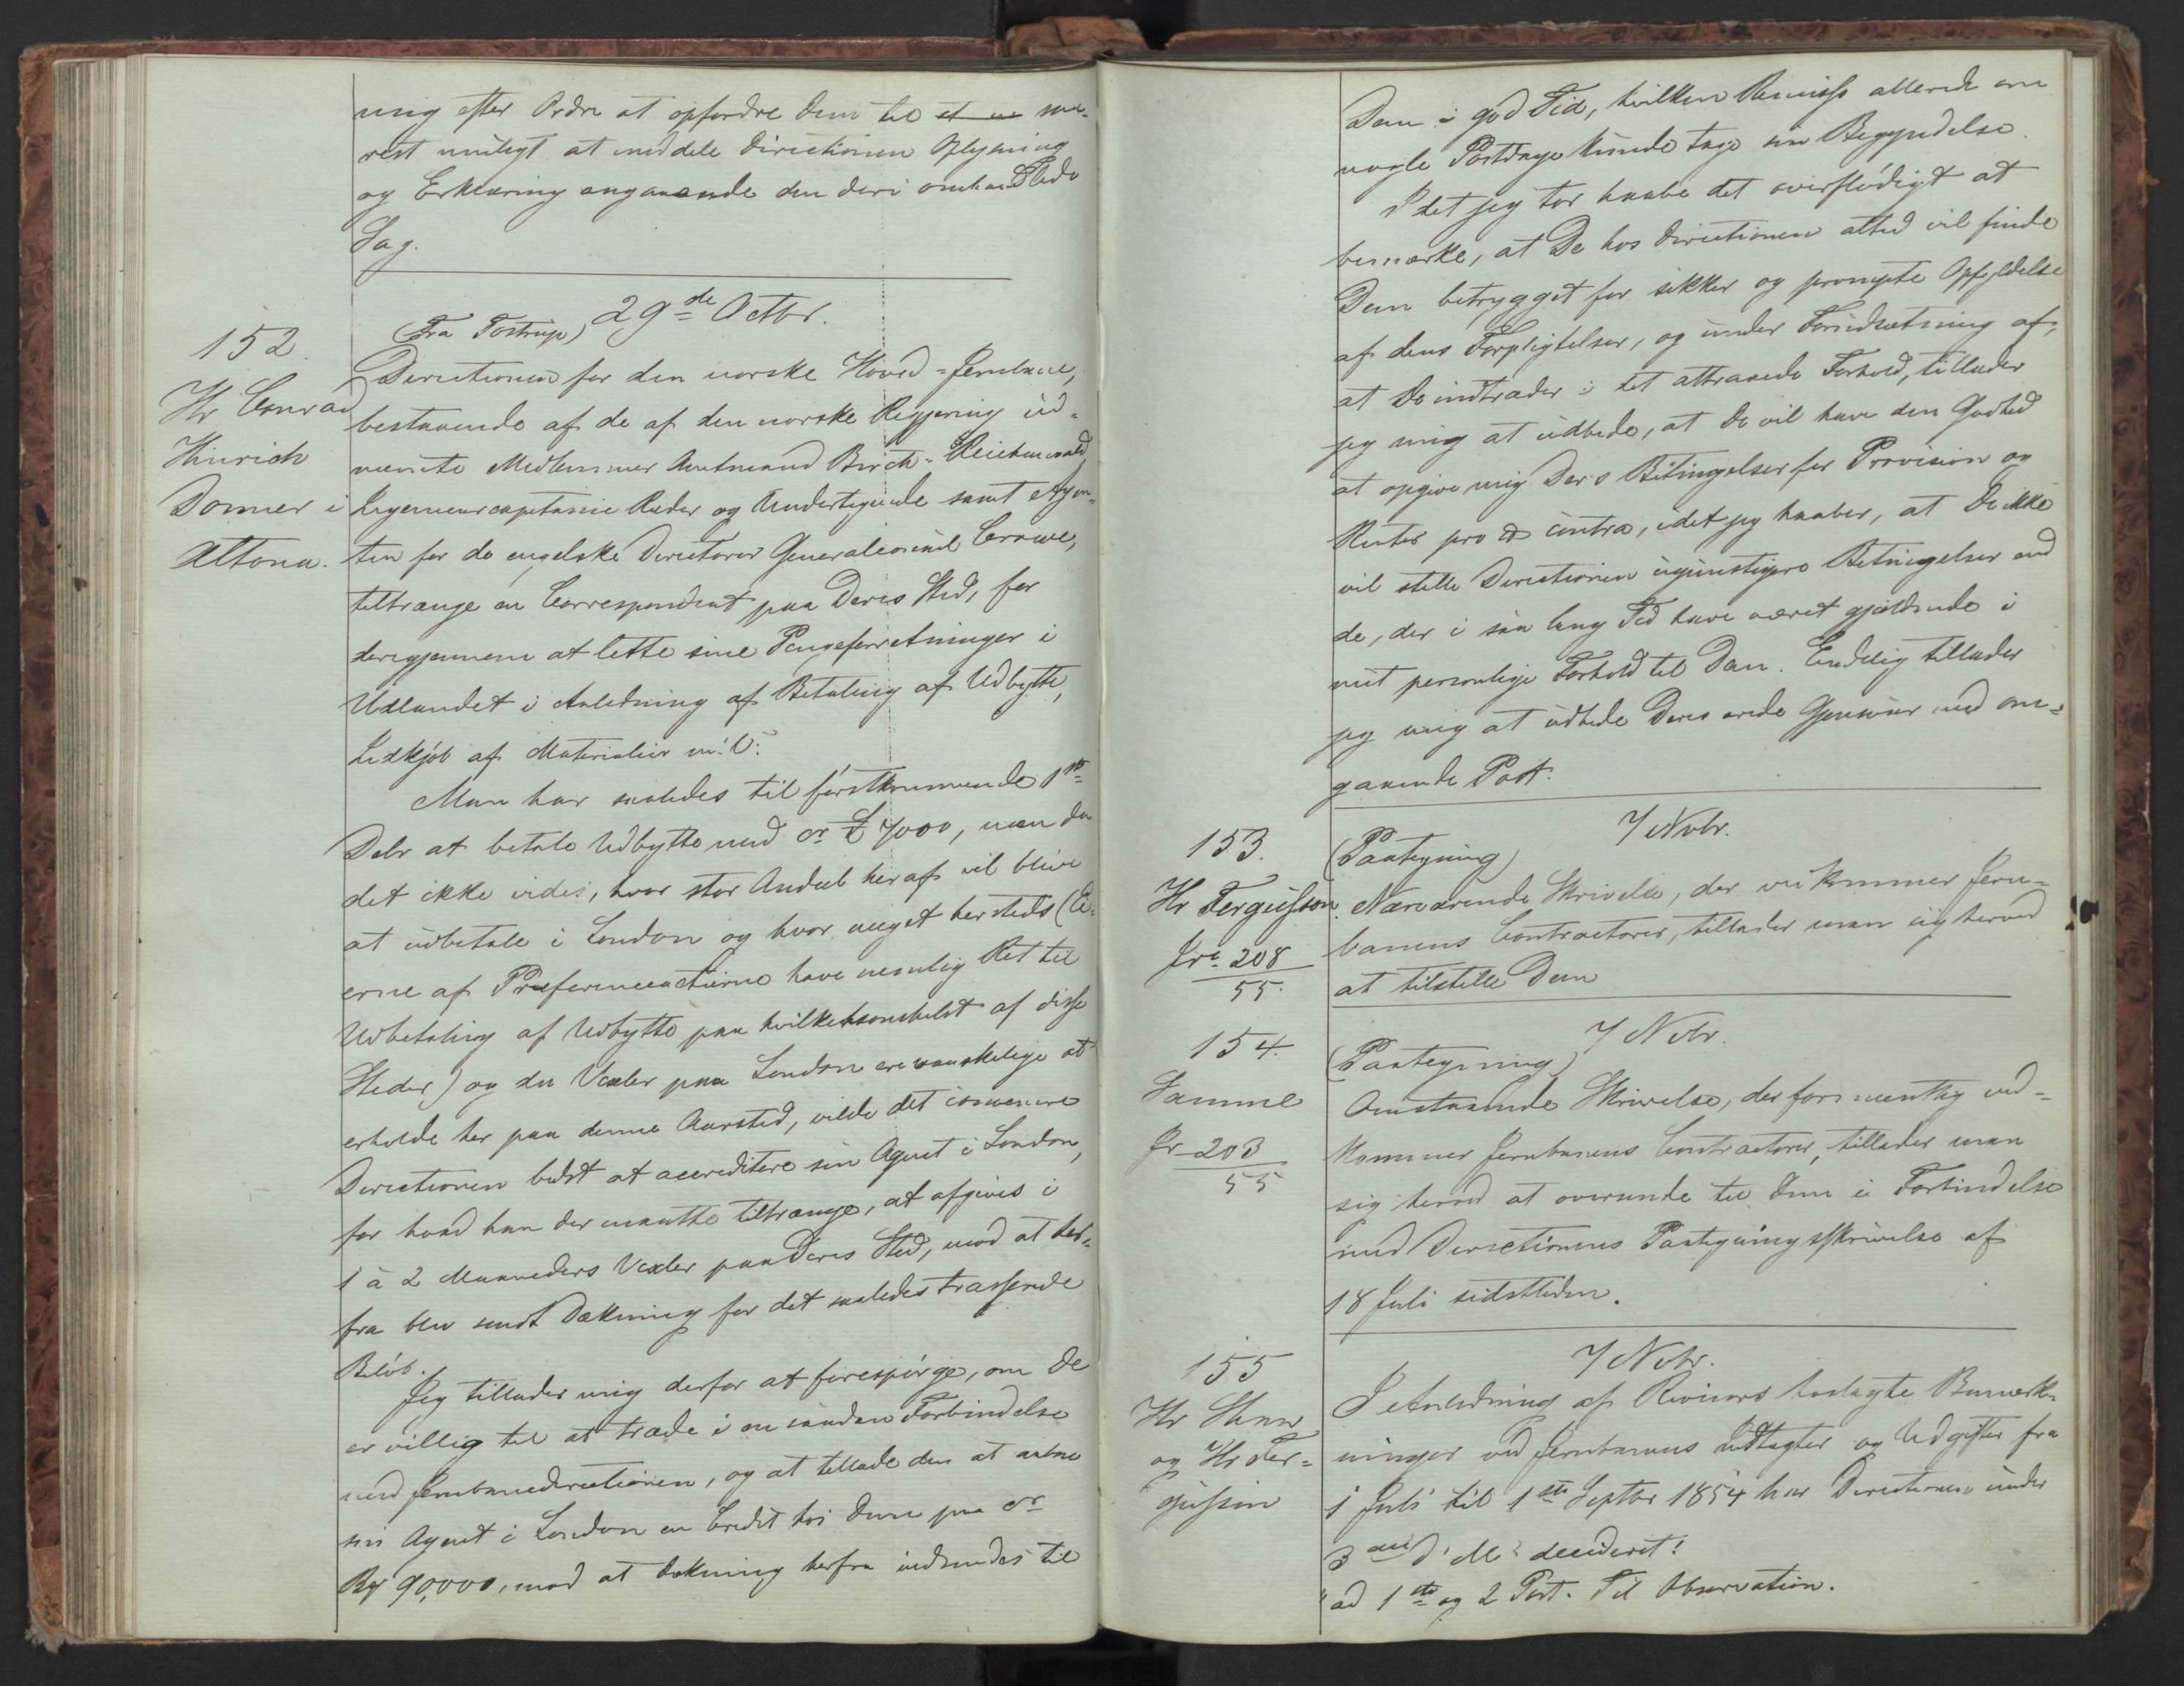 mig efter Ordre at opfordre Dem til et en sna-
rest muligt at meddele Directionen Oplysning
og Erklæring angaaende den deri omhandlede
Sag.
29de Octbr.
(Fra Tostrup)
152.
Hr Conrad
Hinrich
Donner i
Altona.
Directionen for den norske Hoved-Jernbane,
bestaaende af de af den norske Regjering ud-
nævnte Medlemmer Amtmand Birch-Reichenwald,
Ingenieurcapitaine Røder og Undertegnede samt Agen-
ten for de engelske Directører Generalconsul Crowe,
tiltrænge en Correspondent paa Deres Sted, for
derigjennem at lette sine Pengeforretninger i
Udlandet i Anledning af Betaling af Udbytte,
Indkjøb af Materialier m: v:
Man har saaledes til førstkommende 1ste
Decbr at betale Udbytte med cr £ 7000, men da
det ikke vides, hvor stor Andeel heraf vil blive
at udbetale i London og hvor meget hersteds (Ei-
erne af Præferenceactierne have nemlig Ret til
Udbetaling af Udbytte paa hvilketsomhelst af disse
Steder) og da Vexler paa London ere vanskelige at
erholde her paa denne Aarstid, vilde det convenere
Directionen bedst at accreditere sin Agent i London,
for hvad han der maatte tiltrænge, at afgives i
1 à 2 Maaneders Vexler paa Deres Sted, mod at her-
fra blev sendt Dækning for det saaledes trasserede
Beløb.
Jeg tillader mig derfor at forespørge, om De
er villig til at træde i en saadan Forbindelse
med Jernbanedirectionen, og at tillade den at aabne
sin Agent i London en Credit hos Dem paa cr
90,000, mod at Dækning herfra indsendes til
Dem i god Tid, hvilken Remisse allerede om
nogle Postdage kunde tage sin Begyndelse.
Idet jeg tør haabe det overflødigt at
bemærke, at De hos Directionen altid vil finde
Dem betrygget for sikker og prompte Opfyldelse
af dens Forpligtelser, og under Forudsætning af,
at De indtræder i det attraaede Forhold, tillader
jeg mig at udbede, at De vil have den Godhed
at opgive mig Deres Betingelser for Provision og
Renter pro & contra, idet jeg haaber, at De ikke
vil stille Directionen ugunstigere Betingelser end
de, der i saa lang Tid have været gjældende i
mit personlige Forhold til Dem. Endelig tillader
jeg mig at udbede Deres ærede Gjensvar med om-
gaaende Post.
7 Novbr.
153.
Hr Ferguson
Jre 208
55.
(Paategning)
Nærværende Skrivelse, der vedkommer Jern-
banens Contractører, tillader man sig herved
at tilstille Dem
7 Novbr.
154.
Samme
Jr 203
55
(Paategning)
Omstaaende Skrivelse, der formeentlig ved-
kommer Jernbanens Contractører, tillader man
sig herved at oversende til Dem i Forbindelse
med Directionens Paategningsskrivelse af
18 Juli sidstleden.
7 Novbr.
155
Hr
og Hr Fer-
guson
I Anledning af Revisors hoslagte Bemærk-
ninger ved Jernbanens Indtægter og Udgifter fra
1 Juli til 1ste Septbr 1854 har Directionen under
3die d. M. decideret:
"ad 1ste og 2 Post. Til Observation.